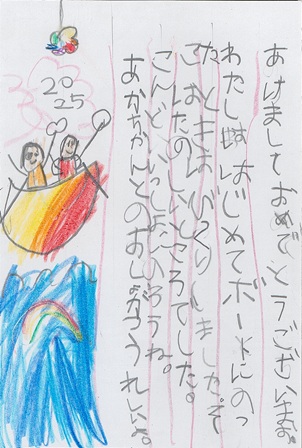 あけましておめでとうございます。
わたしははじめてボートにのっ
たときはびっくりしました。そ
こはたのしいところでした。
こんどいっしょにいろうね。
あかちゃんとのおしょがつうれしいよ。
20
25